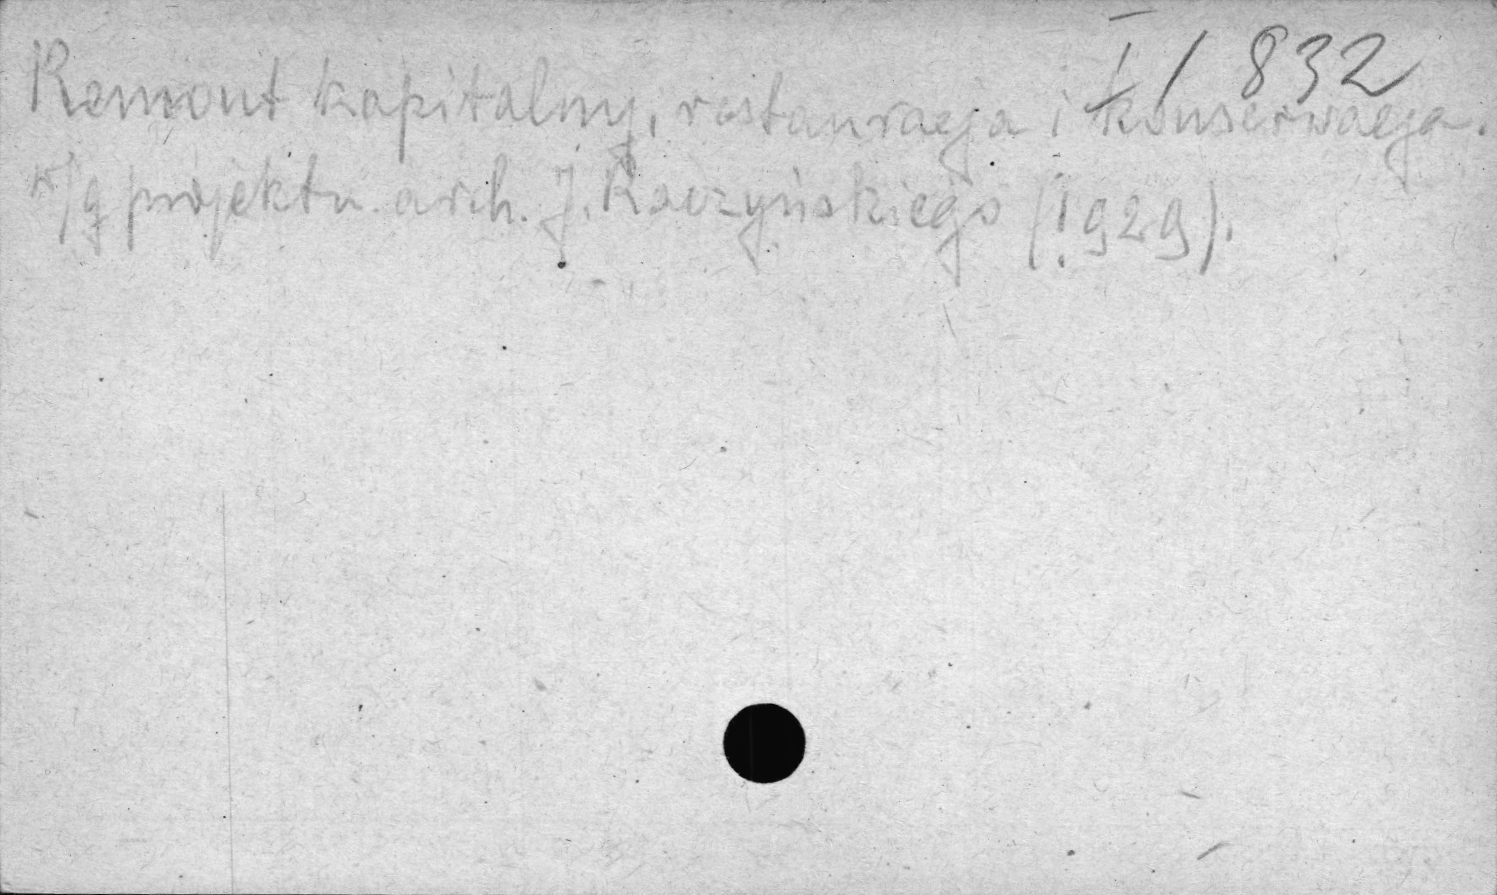 I / 832
Remont kapitalny, restauracja i konserwacja.
w/g projektu arch. J. Raczyńskiego (1929).